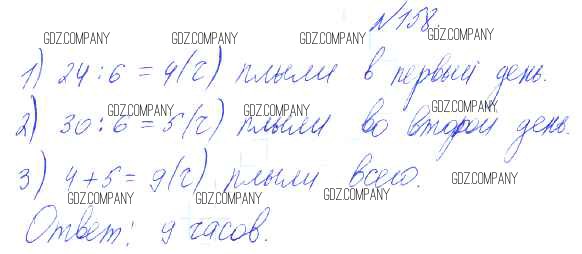 №158.
GDZ.COMPANY GDZ.COMPANY GDZ.COMPANY GDZ.COMPANY
1) 24:6=4(ч) плыли в первый день.
GDZ.COMPANY GDZ.COMPANY GDZ.COMPANY
2) 30:6=5(ч) плыли во второй день.
3) 4+5=9(ч) плыли всего.
GDZ.COMPANY
GDZ.COMPANY GDZ.COMPANY GDZ.COMPANY
Ответ: 9 часов.